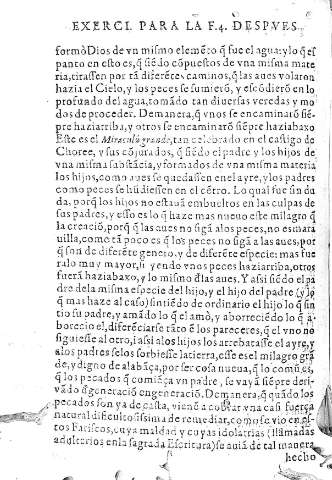 EXERCI. PARA LA F.4. DESPVES
formò Dios de vn mismo elemẽto q̃ fue el agua: y lo q̃ es
panto en esto es, q̃ siẽdo cõpuestos de vna misma mate
ria, tirassen por tã diferẽtes caminos, q̃ las aues volaron
hazia el Cielo, y los peces se sumierõ, y escõdierõ en lo
profundo del agua, tomãdo tan diuersas veredas y mo
dos de proceder. Demanera, q̃ vnos se encaminarõ siẽ
pre haziarriba, y otros se encaminarõ siẽpre haziabaxo
Este es el Miraculũ grande, tan celebrado en el castigo de
Choree, y sus cõjurados, q̃ siẽdo el padre y los hijos de
vna misma substãcia, y formados de vna misma materia
los hijos, como aues se quedassen en el ayre, y los padres
como peces se hũdiessen en el cẽtro. Lo qual fue sin du
da, porq̃ los hijos no estauã embueltos en las culpas de
sus padres, y esso es lo q̃ haze mas nueuo este milagro q̃
la creaciõ, porq̃ q̃ las aues no sigã a los peces, no es mara
uilla, como tã poco es q̃ los peces no sigã a las aues, por
q̃ son de diferẽte genero, y de diferẽte especie: mas fue
ra lo muy mayor, si yendo vnos peces haziarriba, otros
fuerã haziabaxo, y lo mismo d̃ las aues. Y assi siẽdo el pa
dre de la misma especie del hijo, y el hijo del padre (y lo
q̃ mas haze al caso) sintiẽdo de ordinario el hijo lo q̃ sin
tio su padre, y amãdo lo q̃ el amò, y aborreciẽdo lo q̃ a-
borecio el, diferẽciarse tãto ẽ los pareceres, q̃ el vno no
siguiesse al otro, i assi a los hijos los arrebatasse el ayre, y
a los padres se los sorbiesse la tierra, esse es el milagro grã
de, y digno de alabãça, por ser cosa nueua, q̃ lo comũ es,
q̃ los pecados q̃ comiẽça vn padre, se vayã siẽpre deri-
vãdo d̃ generaciõ en generaciõ. Demanera, q̃ quãdo los
pecados son ya de casta, vienẽ a cobrar vna casi fuerça
natural dificultosissima de remediar, como se vio en es-
tos Fariseos, cuya maldad y cuyas idolatrias (llamadas
adulterios en la sagrada Escritura) se auiã de tal manera
hecho